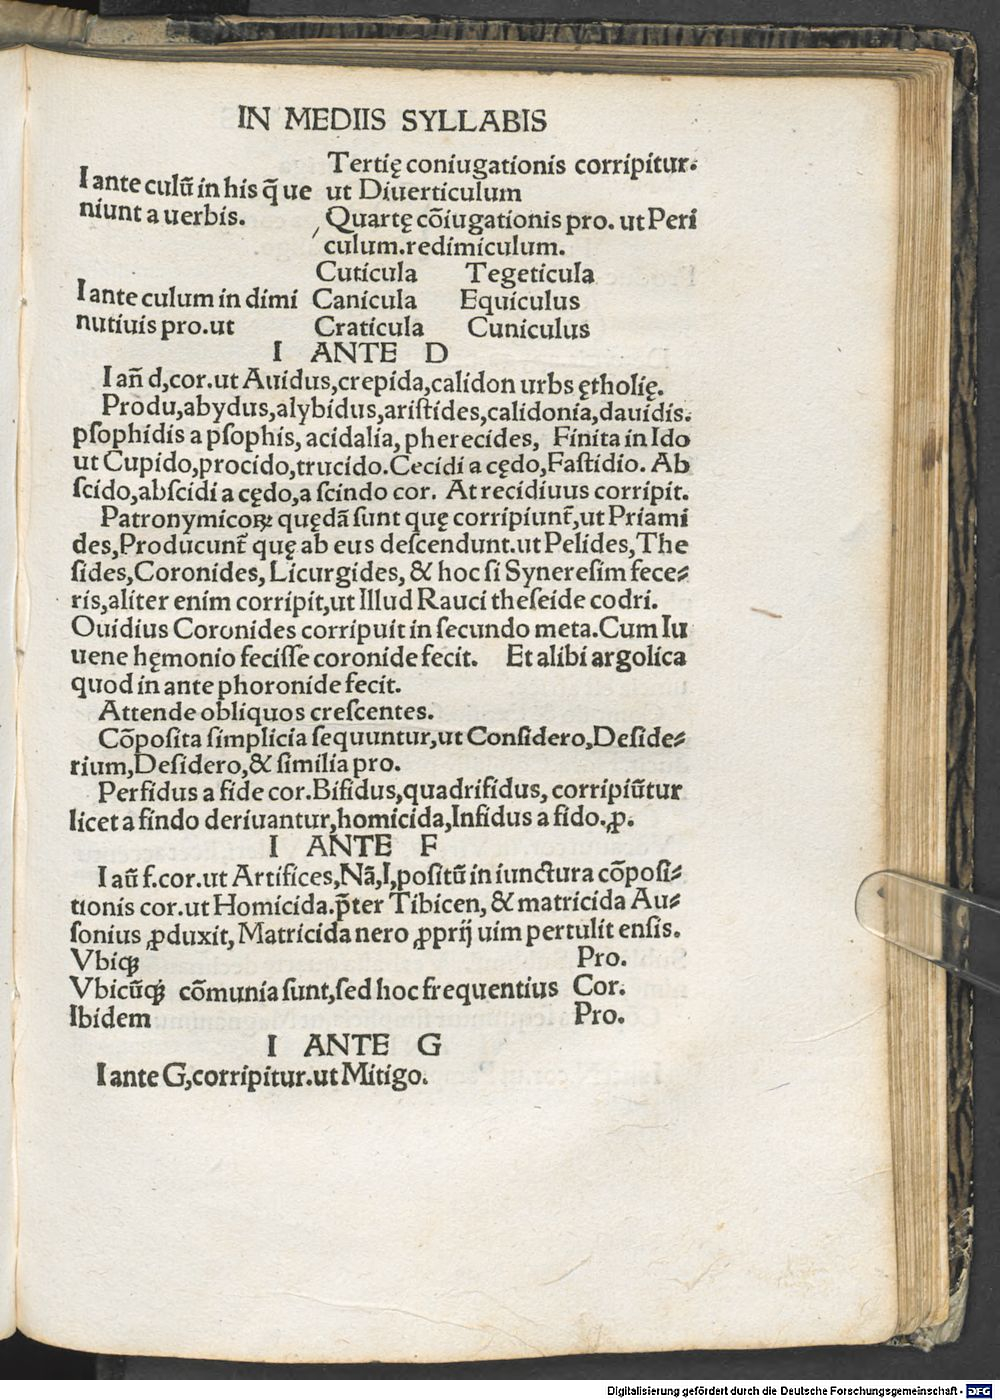 IN MEDIIS SYLLABIS
Tertię coniugationis corripitur.
I ante culū in his q̄ ue ut Diuerticulum
niunt a uerbis. Quartę cōiugationis pro. ut Peri
culum.redimiculum.
Cuticula Tegeticula
I ante culum in dimi Canicula Equiculus
nutiuis pro.ut Craticula Cuniculus
I ANTE D
I an̄ d,cor.ut Auidus,crepida,calidon urbs ętholię.
Produ,abydus,alybidus,ariſtides,calidonia,dauidis.
pſophidis a pſophis, acidalia, pherecides, Finita in Ido
ut Cupido,procido,trucido.Cecidi a cędo,Faſtidio. Ab
ſcido,abſcidi a cędo,a ſcindo cor. At recidiuus corripit.
Patronymicoꝝ quędā ſunt quę corripiunt̄,ut Priami
des,Producunt̄ quę ab eus deſcendunt.ut Pelides,The
ſides,Coronides, Licurgides, & hoc ſi Syneresim fece⸗
ris,aliter enim corripit,ut Illud Rauci theſeide codri.
Ouidius Coronides corripuit in ſecundo meta.Cum Iu
uene hęmonio feciſſe coronide fecit. Et alibi argolica
quod in ante phoronide fecit.
Attende obliquos creſcentes.
Cōpoſita ſimplicia ſequuntur,ut Conſidero,Deſide⸗
rium,Deſidero,& ſimilia pro.
Perfidus a fide cor.Bifidus,quadrifidus, corripiūtur
licet a findo deriuantur,homicida,Infidus a fido.ꝓ.
I ANTE F
I aū f.cor.ut Artifices,Nā,I,poſitū in iunctura cōpoſi⸗
tionis cor.ut Homicida.p̄ter Tibicen, & matricida Au⸗
ſonius ꝓduxit, Matricida nero ꝓprij uim pertulit enſis.
Vbiqꝫ Pro.
Vbicūqꝫ cōmunia ſunt,ſed hoc frequentius Cor.
Ibidem Pro.
I ANTE G
I ante G,corripitur.ut Mitigo.
Digitalisierung gefördert durch die Deutsche Forschungsgemeinschaft - DFG